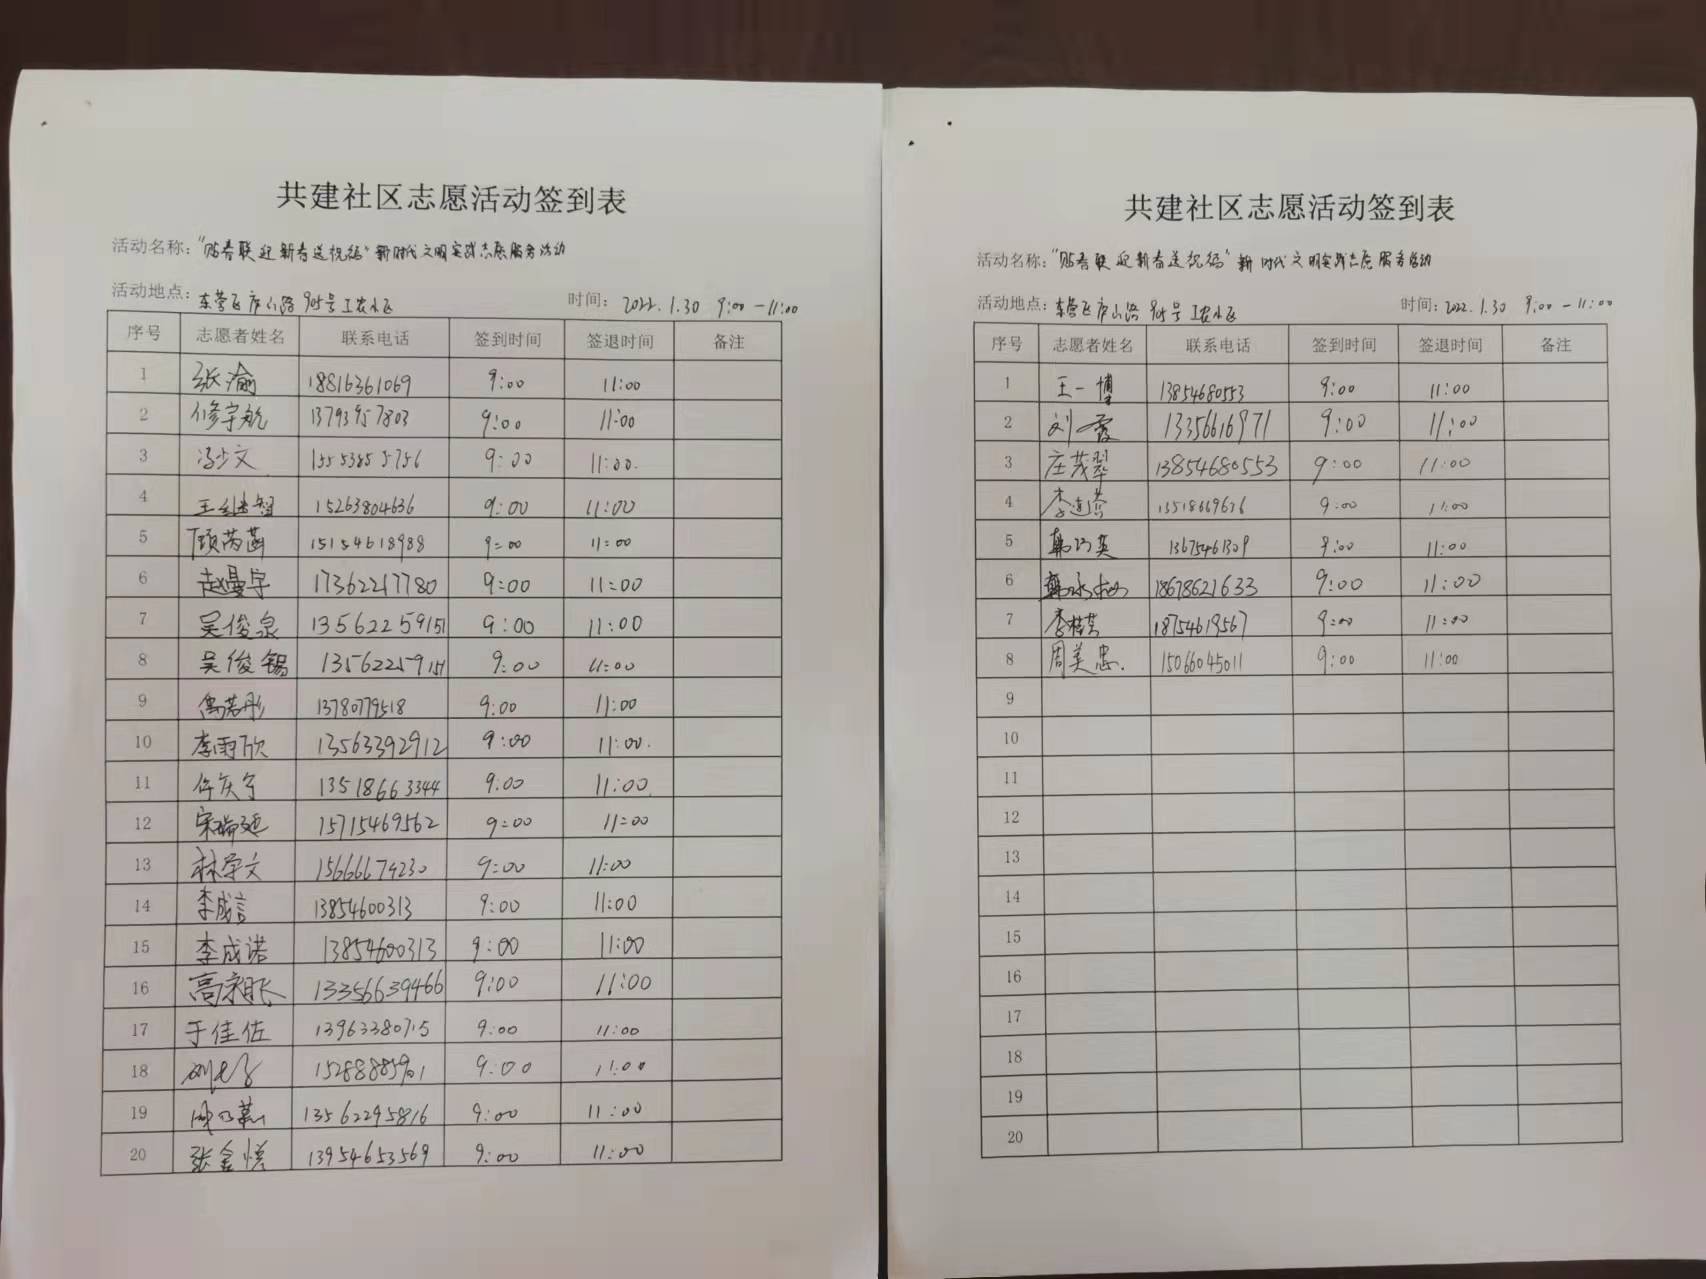 共建社区志愿活动签到表
活动名称：“贴春联 迎新春送祝福”新时代文明实践志愿服务活动
活动地点：东营区庐山路905号工农小区 时间：2022.1.30 9:00-11:00
序号 志愿者姓名 联系电话 签到时间 签退时间 备注
1 张瀹 18816361069 9:00 11:00
2 修宇航 13793957803 9:00 11:00
3 冯少文 15553855756 9:00 11:00.
4 王继智 15263804636 9:00 11:00
5 顾芮菡 15154618988 9:00 11:00
6 赵曼宇 17362217780 9:00 11:00
7 吴俊泉 13562259151 9:00 11:00
8 吴俊锡 13562259151 9:00 11:00
9 13780779518 9:00 11:00
10 李雨欣 13563392912 9:00 11:00.
11 任庆宁 13518663344 9:00 11:00.
12 宋瑜延 15715469562 9:00 11:00
13 林学文 15666674230 9:00 11:00
14 李成言 13854600313 9:00 11:00
15 李成诺 13854600313 9:00 11:00
16 13356639466 9:00 11:00
17 于佳佐 13963380715 9:00 11:00
18 15288885901 9:00 11:00
19 13562295816 9:00 11:00
20 张金悦 13954653569 9:00 11:00
共建社区志愿活动签到表
活动名称：“贴春联 迎新春送祝福”新时代文明实践志愿服务活动
活动地点：东营区庐山路905号工农小区 时间：2022.1.30 9:00-11:00
序号 志愿者姓名 联系电话 签到时间 签退时间 备注
1 王一博 13854680553 9:00 11:00
2 刘霞 13356616971 9:00 11:00
3 庄茂翠 13854680553 9:00 11:00
4 李连荣 13518669676 9:00 11:00
5 韩巧英 13675461309 9:00 11:00
6 18678621633 9:00 11:00
7 李桂芸 18754619567 9:00 11:00
8 周美忠. 15066045011 9:00 11:00
9
10
11
12
13
14
15
16
17
18
19
20